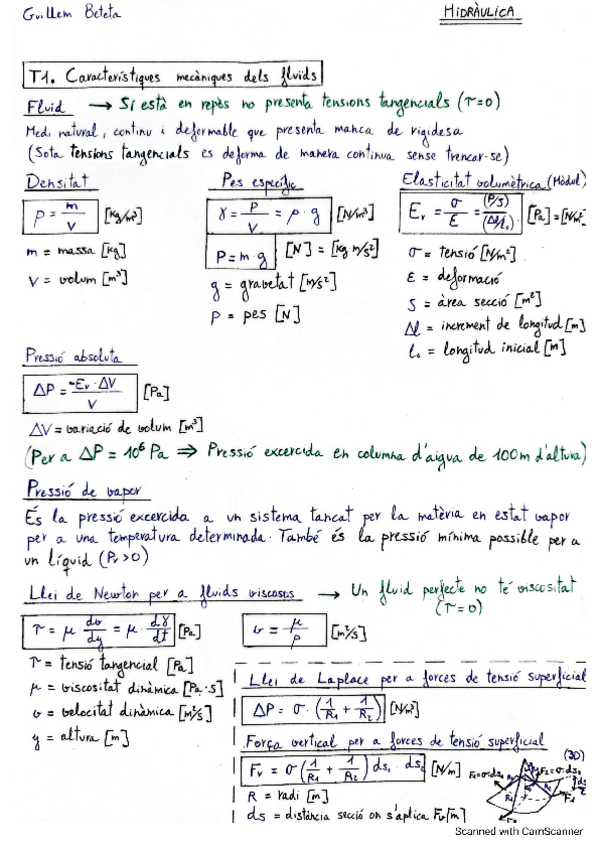 Guillem Beteta
HIDRÀULICA
T1. Característiques mecàniques dels fluids
Fluid → Si està en repòs no presenta tensions tangencials (τ=0)
Medi natural, continu i deformable que presenta manca de rigidesa
(Sota tensions tangencials es deforma de manera continua sense trencar-se)
Densitat
ρ = m/V [kg/m³]
m = massa [kg]
V = volum [m³]
Pes específic
γ = P/V = ρ · g [N/m³]
P = m · g [N] = [kg·m/s²]
g = gravetat [m/s²]
P = pes [N]
Elasticitat volumètrica (Mòdul)
Eᵥ = σ/ε = (P/S)/(Δl/l₀) [Pa] = [N/m²]
σ = tensió [N/m²]
ε = deformació
S = àrea secció [m²]
Δl = increment de longitud [m]
l₀ = longitud inicial [m]
Pressió absoluta
ΔP = -Eᵥ · ΔV/V [Pa]
ΔV = variació de volum [m³]
(Per a ΔP = 10⁶ Pa ⇒ Pressió excercida en columna d'aigua de 100m d'altura)
Pressió de vapor
És la pressió excercida a un sistema tancat per la matèria en estat vapor
per a una temperatura determinada. També és la pressió mínima possible per a
un líquid (Pᵥ>0)
Llei de Newton per a fluids viscosos → Un fluid perfecte no té viscositat
(τ=0)
τ = μ · dv/dy = μ · dγ/dt [Pa]
v = μ/ρ [m²/s]
τ = tensió tangencial [Pa]
μ = viscositat dinàmica [Pa·s]
v = velocitat dinàmica [m²/s]
y = altura [m]
Llei de Laplace per a forces de tensió superficial
ΔP = σ · (1/R₁ + 1/R₂) [N/m²]
Força vertical per a forces de tensió superficial
Fᵥ = σ (1/R₁ + 1/R₂) ds₁ · ds₂ [N/m]
R = radi [m]
ds = distància secció on s'aplica Fᵥ [m]
(3D)
Scanned with CamScanner